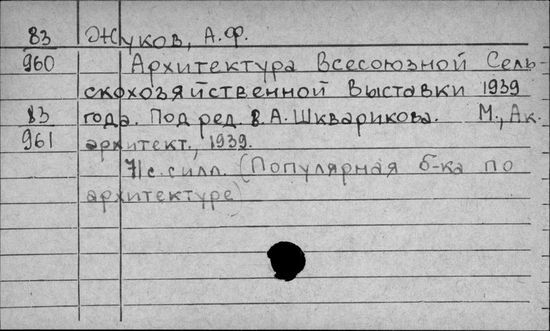 83 Жуков, А.Ф.
960 Архитектура Всесоюзной Сель
скохозяйственной Выставки 1939
83 года. Под ред. В.А. Шкварикова. М., Ак.
961 архитект., 1939.
71с. с илл. (Популярная б-ка по
архитектуре)